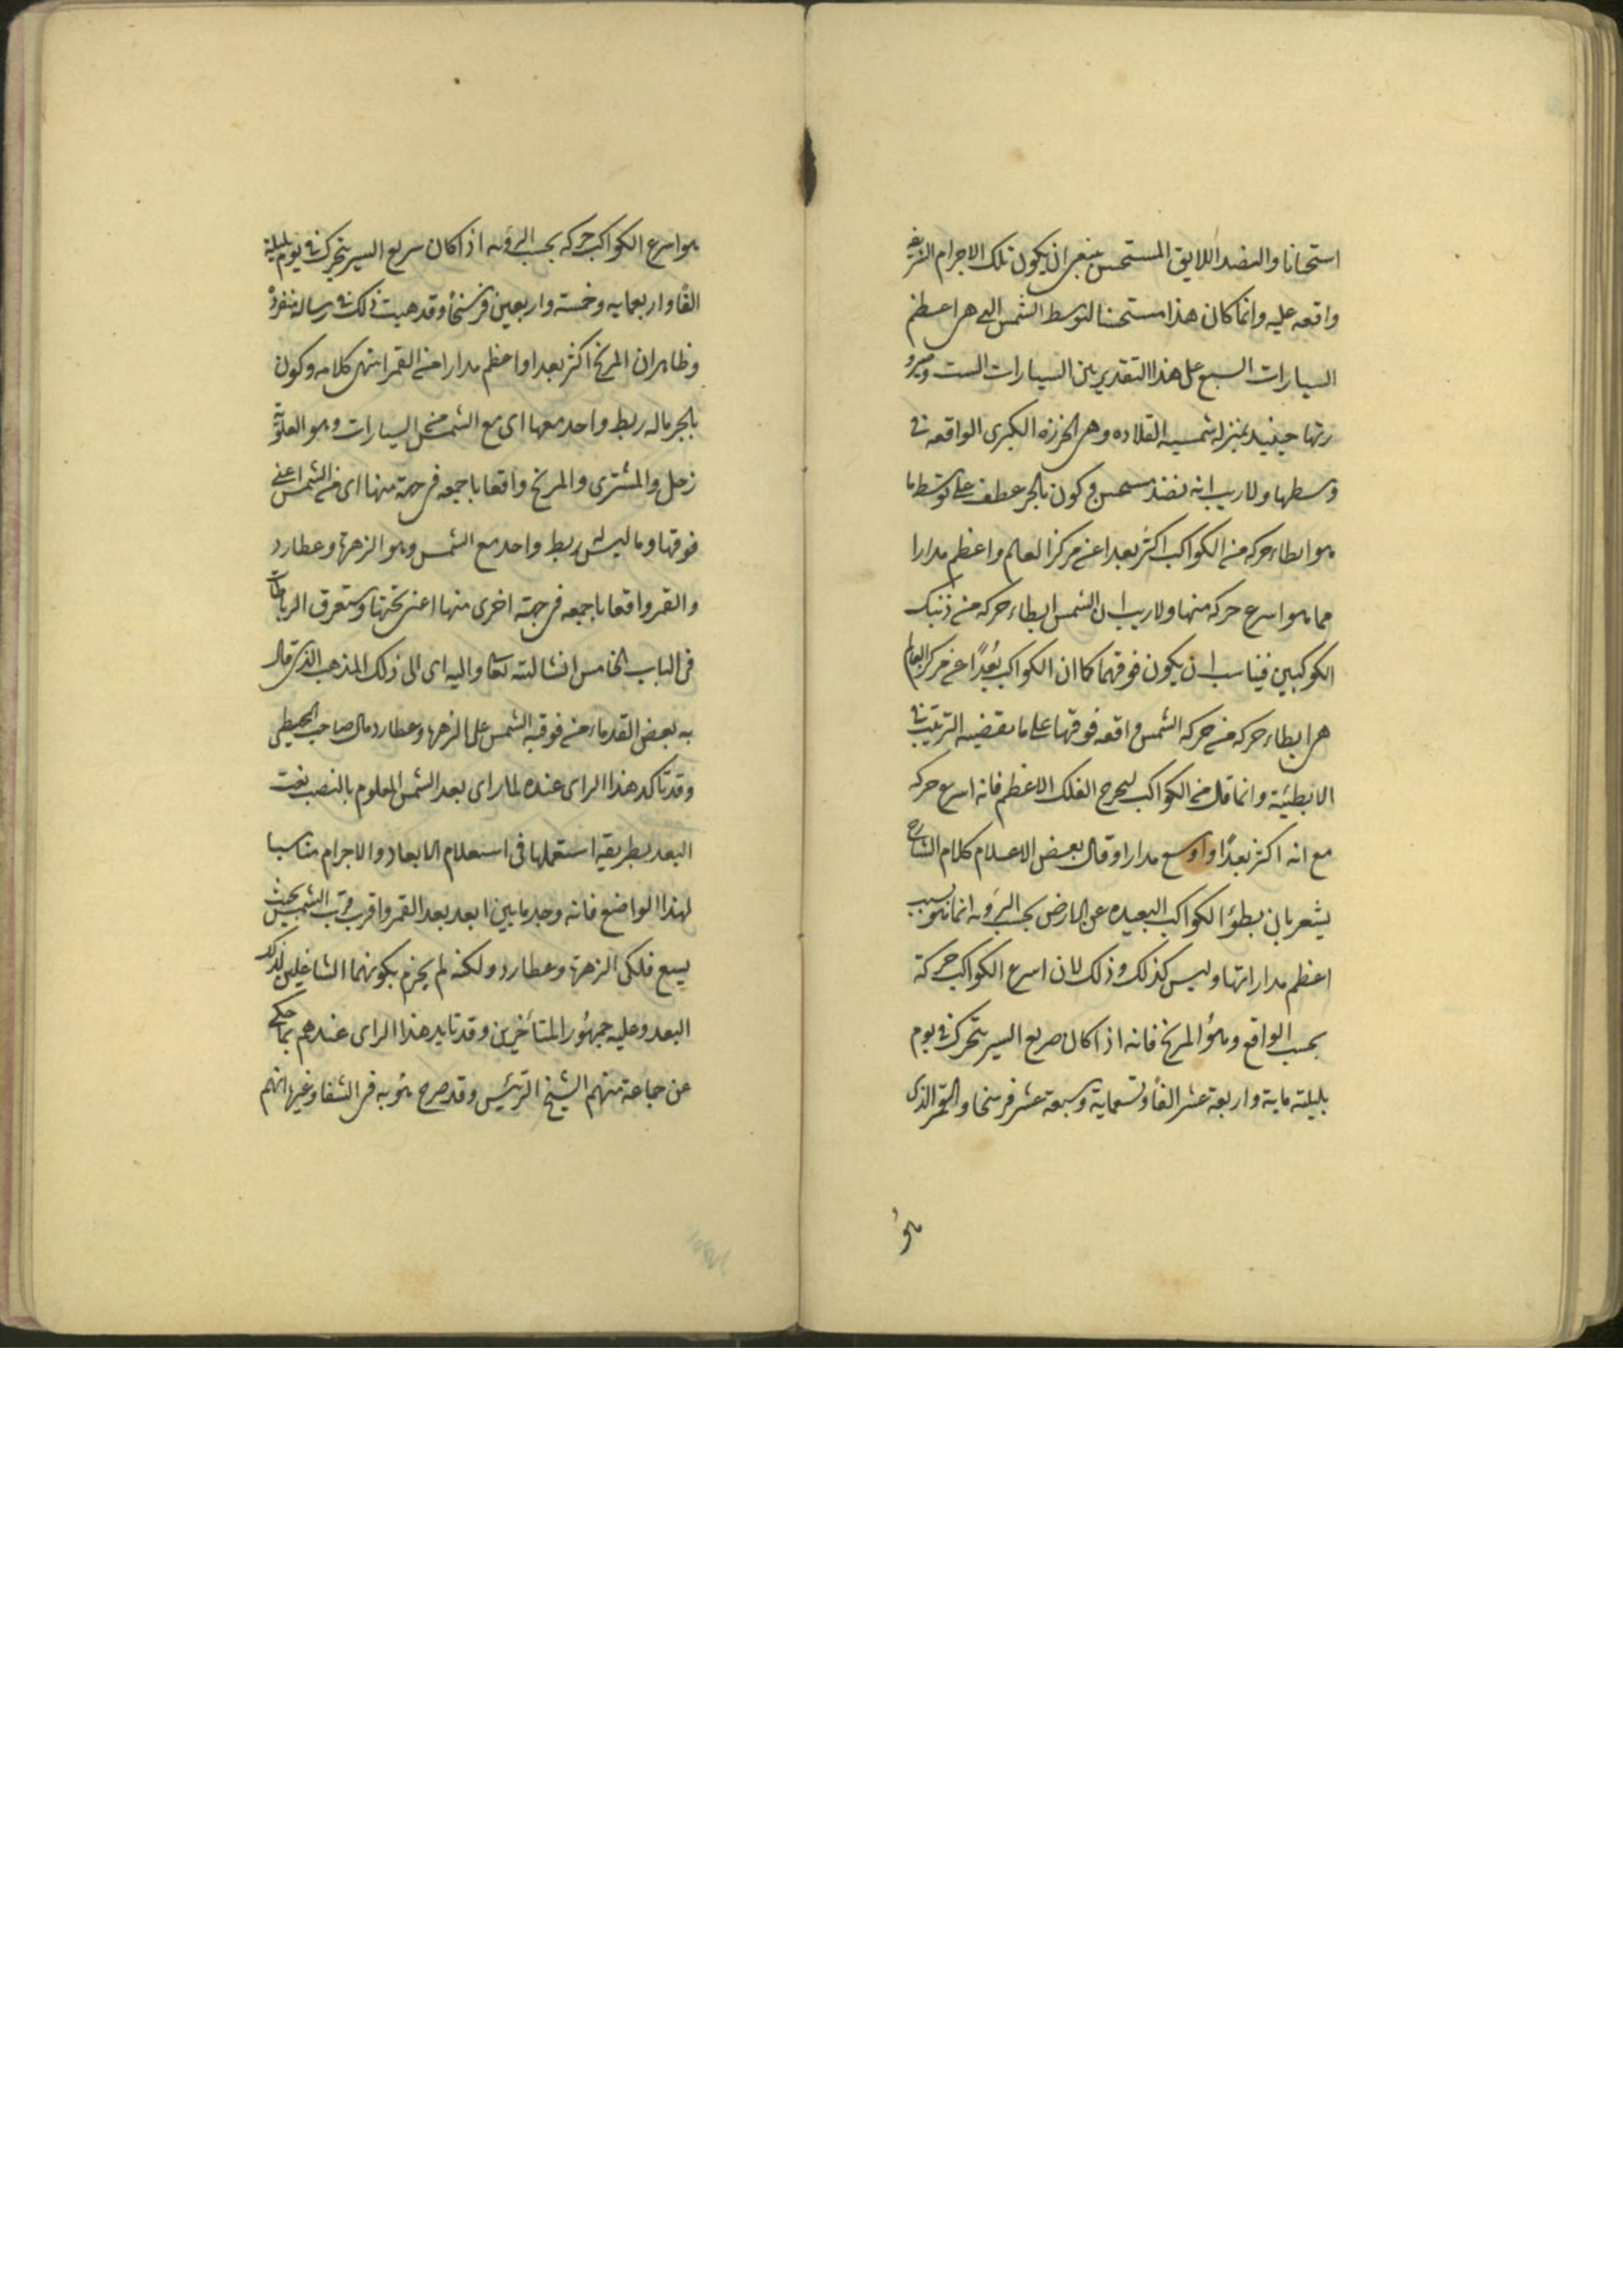 استحسانا والنضد اللايق المستحسن ينبغى ان يكون تلك الاجرام الشريفه
واقعه عليه وانما كان هذا مستحسنا لتوسط الشمس التى هى اعظم
السيارات السبع على هذا التقدير بين السيارات الست وصيرو
رتها حينئد بمنزله شمسيه القلاده وهى الخرزه الكبرى الواقعه فى
وسطها ولا ريب انه نضد مستحسن وكون بالجر عطف على توسط ما
هو ابطاء حركه من الكواكب اكثر بعدا عن مركز العالم واعظم مدارا
مما هو اسرع حركه منها ولا ريب ان الشمس ابطاء حركه من ذنيك
الكوكبين فيناسب ان يكون فوقهما كما ان الكواكب بُعدًا عن مركز العالم
هى ابطاء حركه من حركه الشمس واقعه فوقها على ما يقتضيه الترتيب فى
الابطئية وانما قال من الكواكب ليخرج الفلك الاعظم فانه اسرع حركه
مع انه اكثر بعدًا واوسع مدارا وقال بعض الاعلام كلام الشارح
يشعر بان بطؤ الكواكب البعيده عن الارض بحسب الرؤيه انما هو بسبب
اعظم مداراتها وليس كذلك وذلك لان اسرع الكواكب حركة
بحسب الواقع وهؤ المريخ فانه اذا كان صريع السير يتحرك فى يوم
بليلته ماية واربعة عشر الفاً وتسعماية وسبعة عشر فرسخا والقمر الذى
هؤ
هو اسرع الكواكب حركه بحسب الرؤيه اذا كان سريع السير يتحرك فى يوم بليلة
الفًا واربعمايه وخمسته واربعين فرسخاً وقد هيت ذلك فى رساله منفردة
وظاهر ان المريخ اكثر بعدا واعظم مدارا من القمر انتهى كلامه وكون
بالجر ماله ربط واحد معها اى مع الشمس من السيارات وهو العلويّة
زحل والمشترى والمريخ واقعا باجمعه فى جهة منها اى من الشمس اعنى
فوقها وما ليس له ربط واحد مع الشمس وهو الزهرة وعطارد
والقمر واقعا باجمعه فى جهة اخرى منها اعنى تحتها وستعرف الرباطات
فى الباب الخامس انشا لته تعا واليه اى الى ذلك المذهب الذى قال
به بعض القدماء من فوقيه الشمس على الزهرة وعطارد مال صاحب المجسطى
وقد تاكد هذا الراى عنده لما راى بعد الشمس المعلوم بالنصب نعت
البعد بطريقه استعملها فى استعلام الابعاد والاجرام مناسبا
لهذا الواضع فانه وجد ما بين ابعد بعد القمر واقرب قرب الشمس بحيث
يسع فلكى الزهرة وعطارد ولكنه لم يجزم بكونهما الشاغلين لذلك
البعد وعليه جمهور المتأخرين وقد تايد هذا الراى عندهم بما حكى
عن جماعة منهم الشيخ الرئيس وقد صرح هو به فى الشفا وغيرها انهم